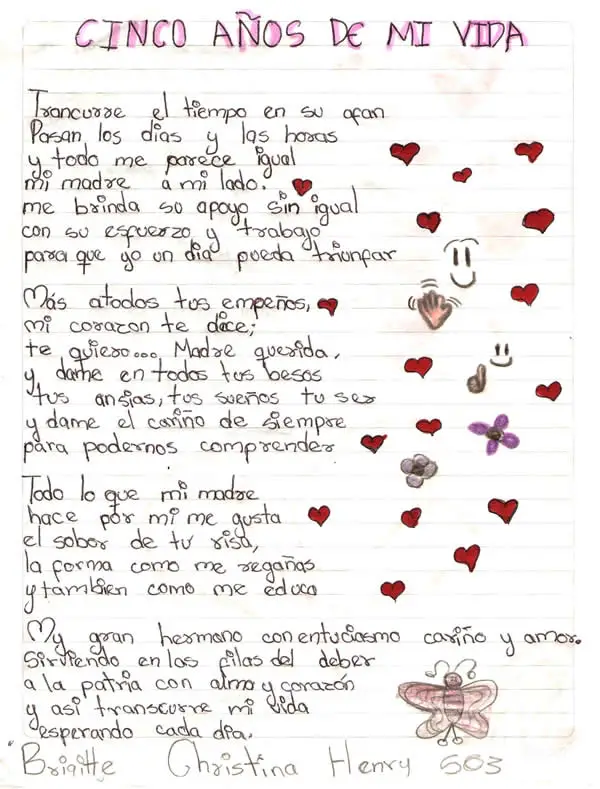 CINCO AÑOS DE MI VIDA
Trancurre el tiempo en su afan
Pasan los dias y las horas
y todo me parece igual
mi madre a mi lado.
me brinda su apoyo sin igual
con su esfuerzo y trabajo
para que yo un dia pueda triunfar
Más atodos tus empeños,
mi corazon te dice;
te quiero... Madre querida,
y dame en todos tus besos
tus ansias, tus sueños tu ser
y dame el cariño de siempre
para podernos comprender
Todo lo que mi madre
hace por mi me gusta
el sobor de tu risa,
la forma como me regañas
y tambien como me educa
My gran hermano con entuciasmo cariño y amor.
Sirviendo en las filas del deber
a la patria con alma y corazón
y asi transcurre mi vida
esperando cada dia.
Brigitte Christina Henry 503